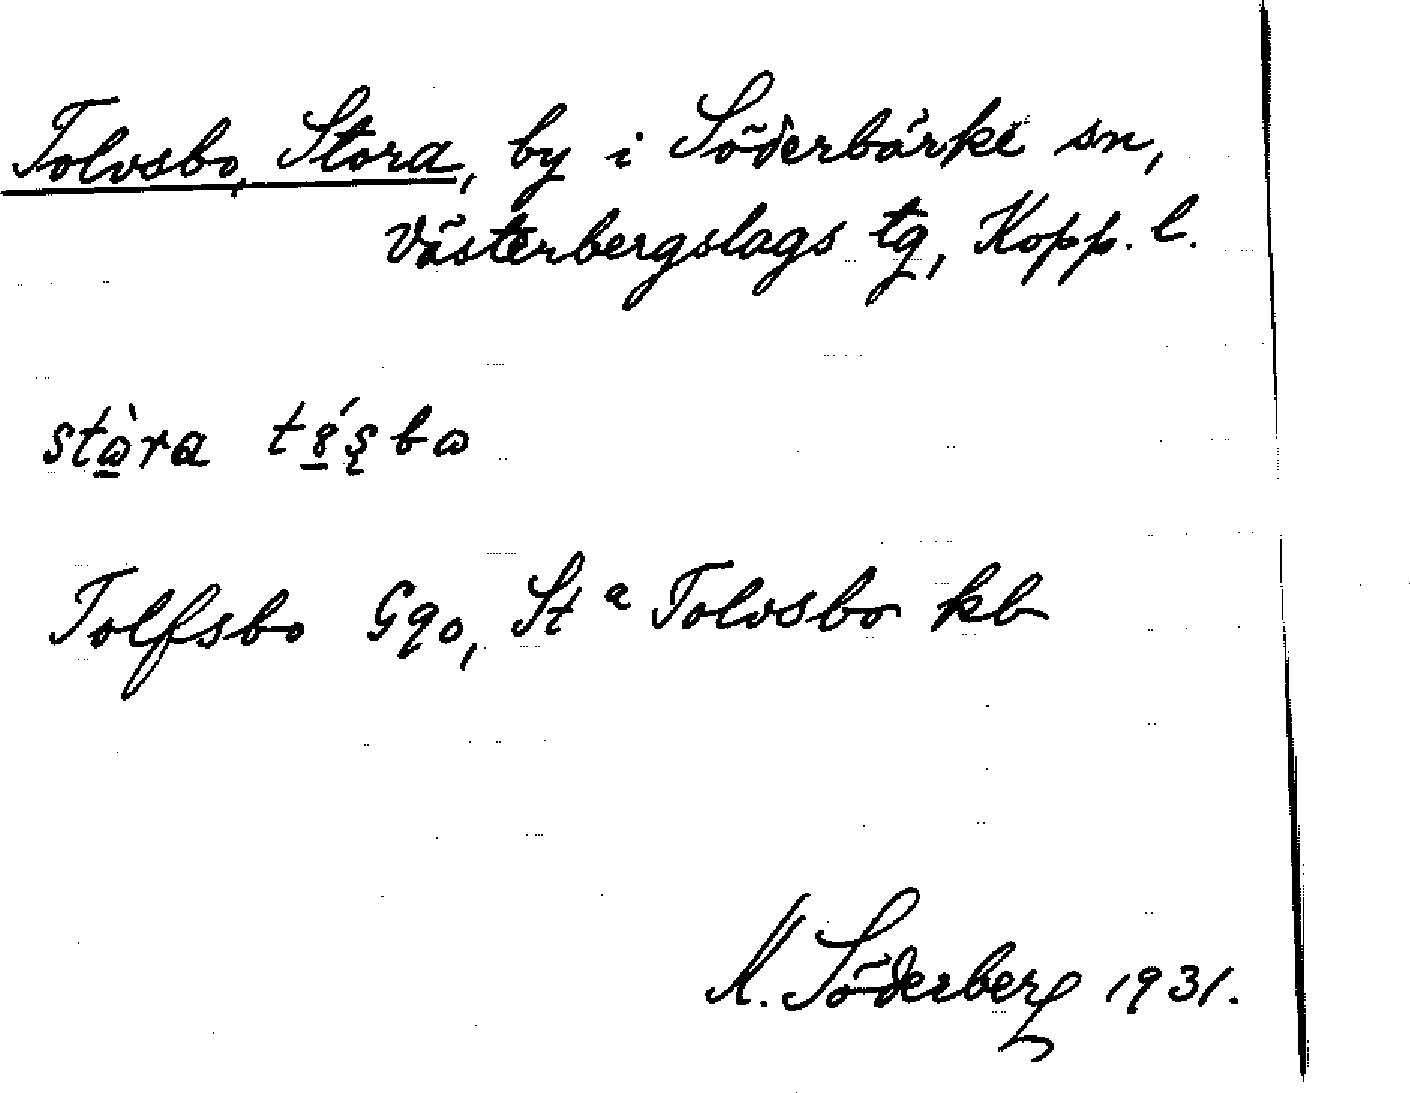 Tolvsbo, Stora, by i Söderbärke sn,
Västerbergslags tg, Kopp. l.
stɷ̀ra tɞ́ʂbɷ
Tolfsbo Gqo, St a Tolvsbo kb
M. Söderberg 1931.